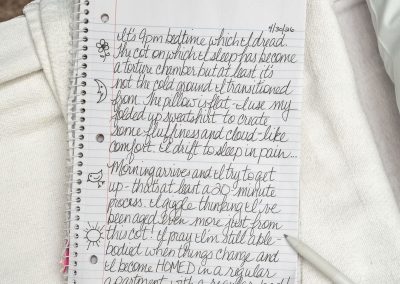 4/30/26
It's 9pm bedtime which I dread.
The cot on which I sleep has become
a torture chamber but at least it's
not the cold ground I transitioned
from. The pillow is flat - I use my
folded up sweatshirt to create
some fluffiness and cloud-like
comfort. I drift to sleep in pain...
Morning arrives and I try to get
up - that's at least a 30-minute
process. I giggle thinking I've
been aged even more just from
this cot! I pray I'm still able-
bodied when things change and
I become HOMED in a regular
apartment with a regular